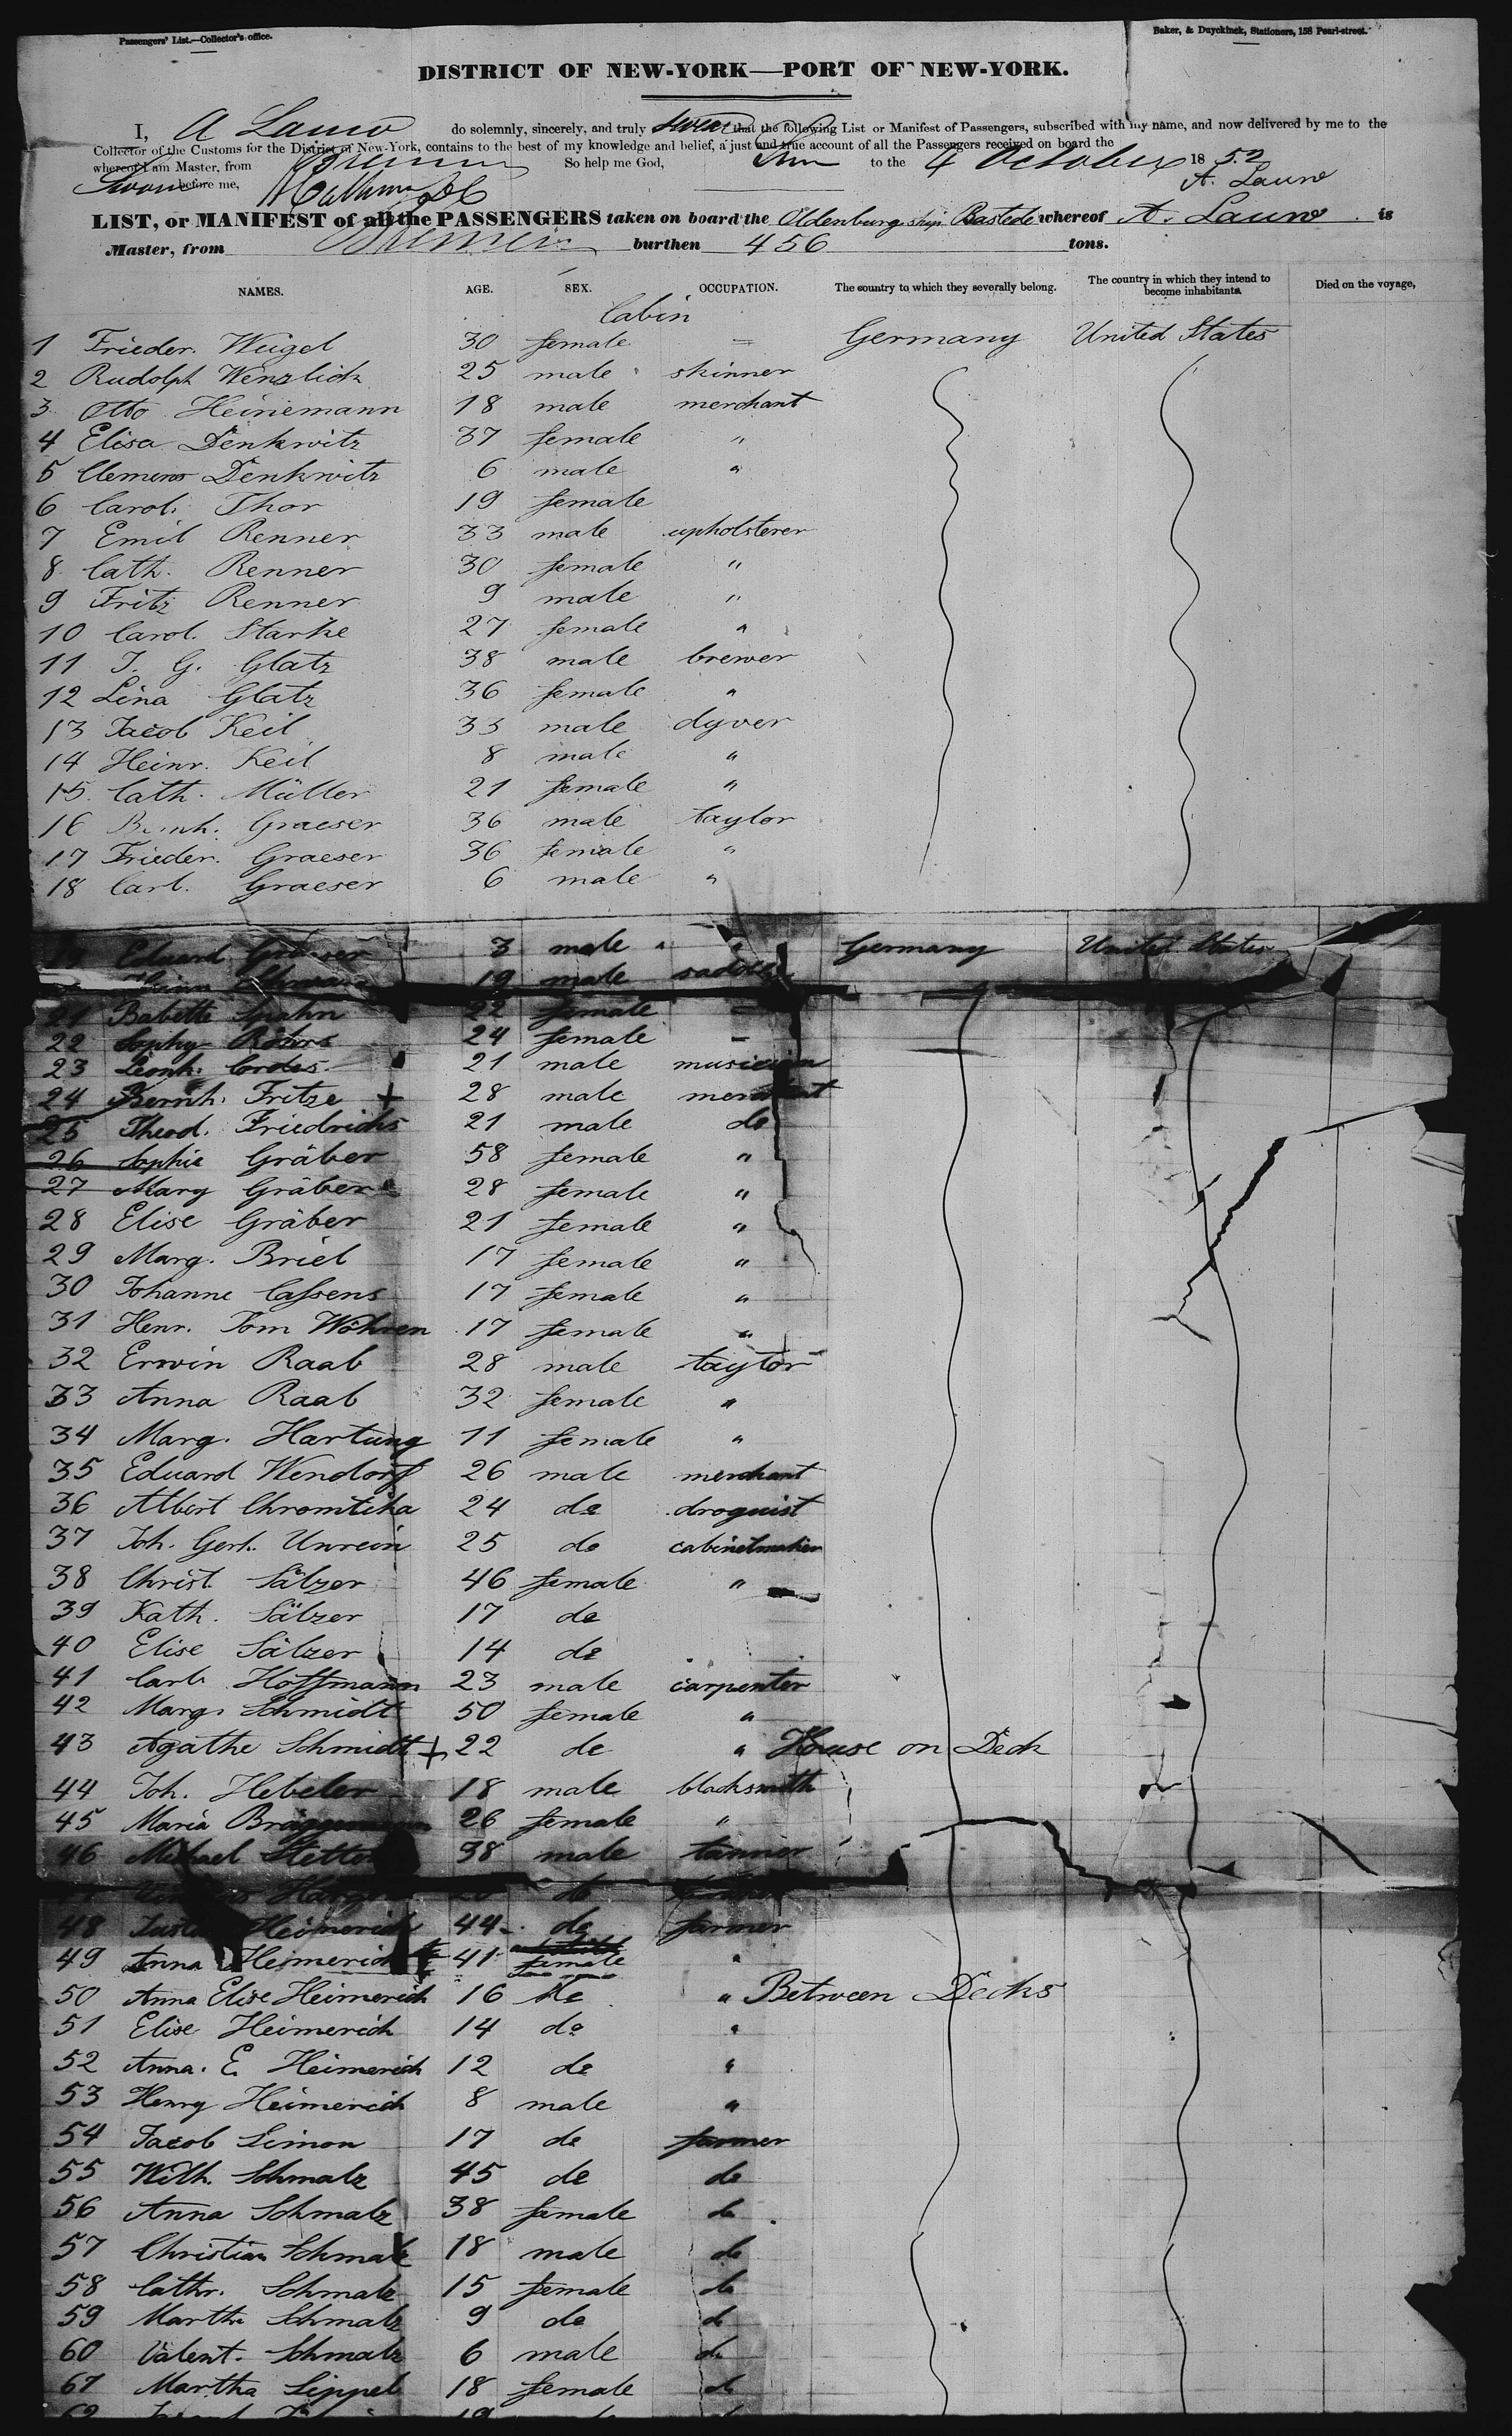 Passengers' List.—Collector's office.
Baker, & Duyckinck, Stationers, 158 Pearl-street.
DISTRICT OF NEW-YORK—PORT OF NEW-YORK.
I, A Lauw do solemnly, sincerely, and truly swear that the following List or Manifest of Passengers, subscribed with my name, and now delivered by me to the
Collector of the Customs for the District of New-York, contains to the best of my knowledge and belief, a just and true account of all the Passengers received on board the
whereof I am Master, from Bremen
Sworn to the 4 October 1852
before me, So help me God, A. Lauw
LIST, or MANIFEST of all the PASSENGERS taken on board the Oldenburg ship Bastede whereof A. Lauw is
Master, from Bremen burthen 456 tons.
NAMES. AGE. SEX. OCCUPATION. The country to which they severally belong. The country in which they intend to become inhabitants. Died on the voyage,
Cabin
1 Frieder. Weigel 30 female = Germany United States
2 Rudolph Wenzlick 25 male skinner
3 Otto Heinemann 18 male merchant
4 Elisa Denkwitz 37 female "
5 Clemens Denkwitz 6 male "
6 Carol. Thor 19 female
7 Emil Renner 33 male upholsterer
8 Cath. Renner 30 female "
9 Fritz Renner 9 male "
10 Carol. Starke 27 female "
11 J. G. Glatz 38 male brewer
12 Lina Glatz 36 female "
13 Jacob Keil 33 male dyver
14 Heinr. Keil 8 male "
15 Cath. Müller 21 female "
16 Bernh. Graeser 36 male taylor
17 Frieder. Graeser 36 female "
18 Carl. Graeser 6 male "
19 Eduard Graeser 3 male " Germany United States
19 male
21 Babette Spahn 22 female
22 Sophy Röhrs 24 female –
23 Leonh. Cordes 21 male musician
24 Bernh. Fritze + 28 male merchant
25 Theod. Friedrichs 21 male do
26 Sophie Gräber 58 female "
27 Mary Gräber 28 female "
28 Elise Gräber 21 female "
29 Marg. Briel 17 female "
30 Johanne Cassens 17 female "
31 Henr. Tom Wöhren 17 female "
32 Erwin Raab 28 male taylor
33 Anna Raab 32 female "
34 Marg. Hartung 11 female "
35 Eduard Wendorf 26 male merchant
36 Albert Chromtika 24 do droguist
37 Joh. Gerh. Unrein 25 do cabinetmaker
38 Christ. Sälzer 46 female "
39 Kath. Sälzer 17 do
40 Elise Sälzer 14 do
41 Carl Hoffmann 23 male carpenter
42 Marg. Schmidt 50 female "
43 Agathe Schmidt + 22 do " House on Deck
44 Joh. Hebeler 18 male blacksmith
45 Maria Brüggemann 26 female "
46 Michael Stetter 38 male tanner
do
48 Heimerich 44 do farmer
49 Anna Heimerich 41 female "
50 Anna Elise Heimerich 16 do " Between Decks
51 Elise Heimerich 14 do "
52 Anna. E. Heimerich 12 do "
53 Henry Heimerich 8 male "
54 Jacob Simon 17 do farmer
55 Wilh. Schmalz 45 do do
56 Anna Schmalz 38 female do
57 Christian Schmalz 18 male do
58 Cathr. Schmalz 15 female do
59 Martha Schmalz 9 do do
60 Valent. Schmalz 6 male do
61 Martha Lippel 18 female do